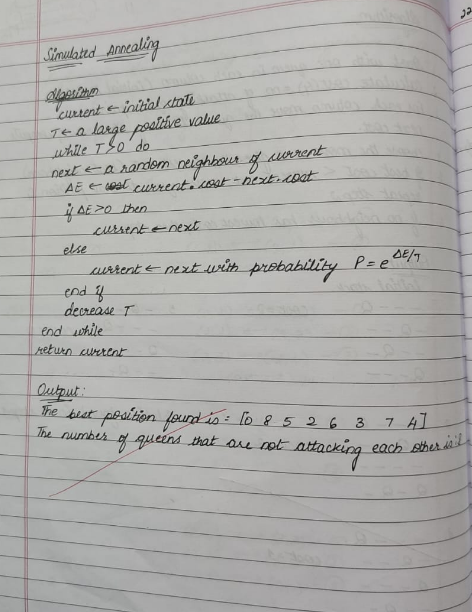 22
Simulated Annealing
Algorithm
current ← initial state
T ← a large positive value
while T > 0 do
next ← a random neighbour of current
ΔE ← current.cost - next.cost
if ΔE > 0 then
current ← next
else
current ← next with probability P = e^ΔE/T
end if
decrease T
end while
return current
Output:
The best position found is: [0 8 5 2 6 3 7 4]
The number of queens that are not attacking each other is: